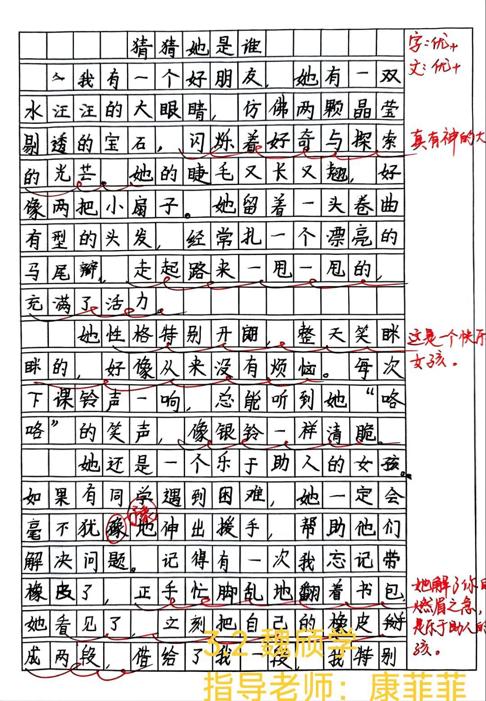 猜猜她是谁
我有一个好朋友，她有一双
水汪汪的大眼睛，仿佛两颗晶莹
剔透的宝石，闪烁着好奇与探索
的光芒。她的睫毛又长又翘，好
像两把小扇子。她留着一头卷曲
有型的头发，经常扎一个漂亮的
马尾辫，走起路来一甩一甩的，
充满了活力。
她性格特别开朗，整天笑眯
眯的，好像从来没有烦恼。每次
下课铃声一响，总能听到她“咯
咯”的笑声，像银铃一样清脆。
她还是一个乐于助人的女孩。
如果有同学遇到困难，她一定会
毫不犹豫地伸出援手，帮助他们
解决问题。记得有一次我忘记带
橡皮了，正手忙脚乱地翻着书包，
她看见了，立刻把自己的橡皮掰
成两段，借给了我一段，我特别
字：优+
文：优+
真有神的大
这是一个快乐
女孩。
她解了你的
燃眉之急，
是乐于助人的
孩。
3.2 魏颀学
指导老师：康菲菲